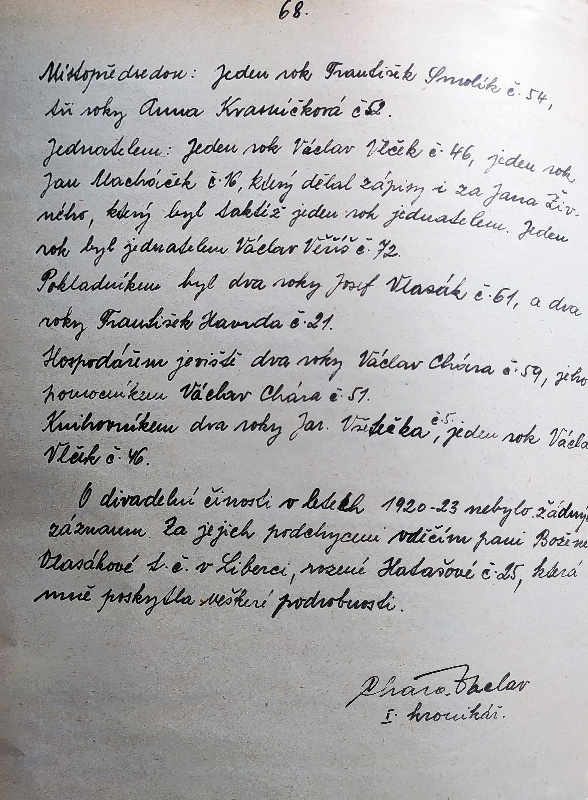 68.
Místopředsedou: Jeden rok František Smolík č. 54,
tři roky Anna Krasníčková č 52.
Jednatelem: Jeden rok Václav Vlček č. 46, jeden rok
Jan Macháček č. 16, který dělal zápisy i za Jana Živ-
ného, který byl taktéž jeden rok jednatelem. Jeden
rok byl jednatelem Václav č. 72.
Pokladníkem byl dva roky Josef Vlasák č. 61, a dva
roky František Havrda č. 21.
Hospodářem jeviště dva roky Václav Chára č. 59, jeho
pomocníkem Václav Chára č. 51.
Knihovníkem dva roky Jar. Všetečka č. 5., jeden rok Václa
Vlček č. 46.
O divadelní činosti v letech 1920-23 nebylo žádný
záznam. Za jejich podchycení vděčím paní Božen
Vlasákové t. č. v Liberci, rozené Hatašové č. 25, která
mně poskytla veškeré podrobnosti.
Chára Václav
I. kronikář.